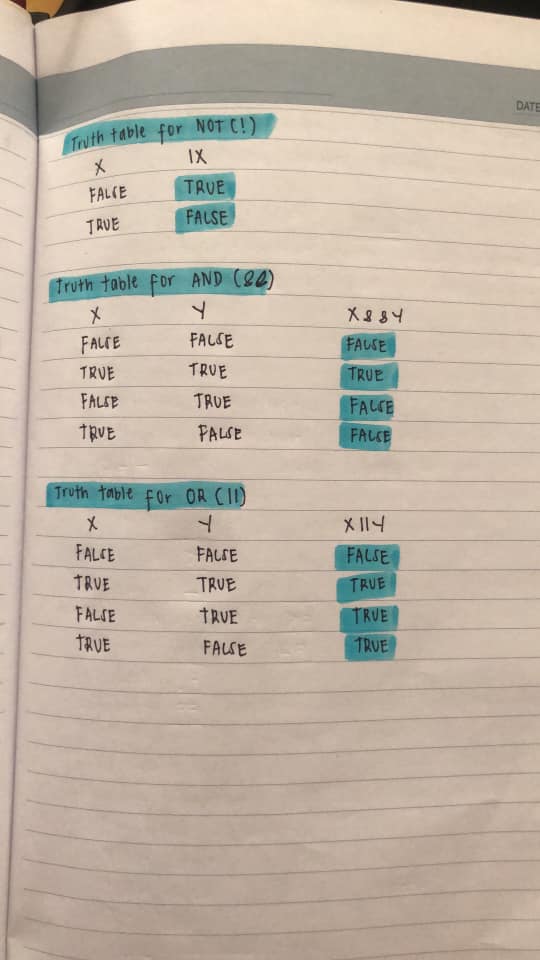 DATE
Truth table for NOT (!)
X !X
FALSE TRUE
TRUE FALSE
Truth table for AND (&&)
X Y X&&Y
FALSE FALSE FALSE
TRUE TRUE TRUE
FALSE TRUE FALSE
TRUE FALSE FALSE
Truth table for OR (||)
X Y X||Y
FALSE FALSE FALSE
TRUE TRUE TRUE
FALSE TRUE TRUE
TRUE FALSE TRUE